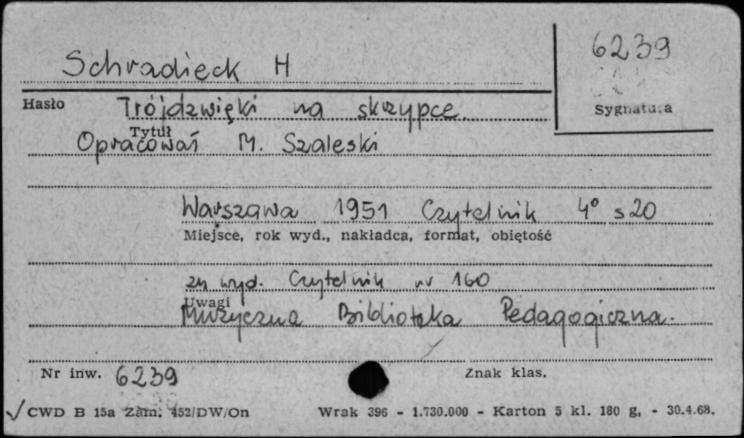 6239
Schradieck H
Hasło Trójdzwięki na skrzypce. Sygnatura
Tytuł
Opracował M. Szaleski
Warszawa 1951 Czytelnik 4° s 20
Miejsce, rok wyd., nakładca, format, objętość
zn wyd. Czytelnik nr 160
Uwagi
Muzyczna Biblioteka Pedagogiczna.
Nr inw. 6239 Znak klas.
✓ CWD B 15a Zam. 452/DW/On Wrak 396 - 1.730.000 - Karton 5 kl. 180 g, - 30.4.68.